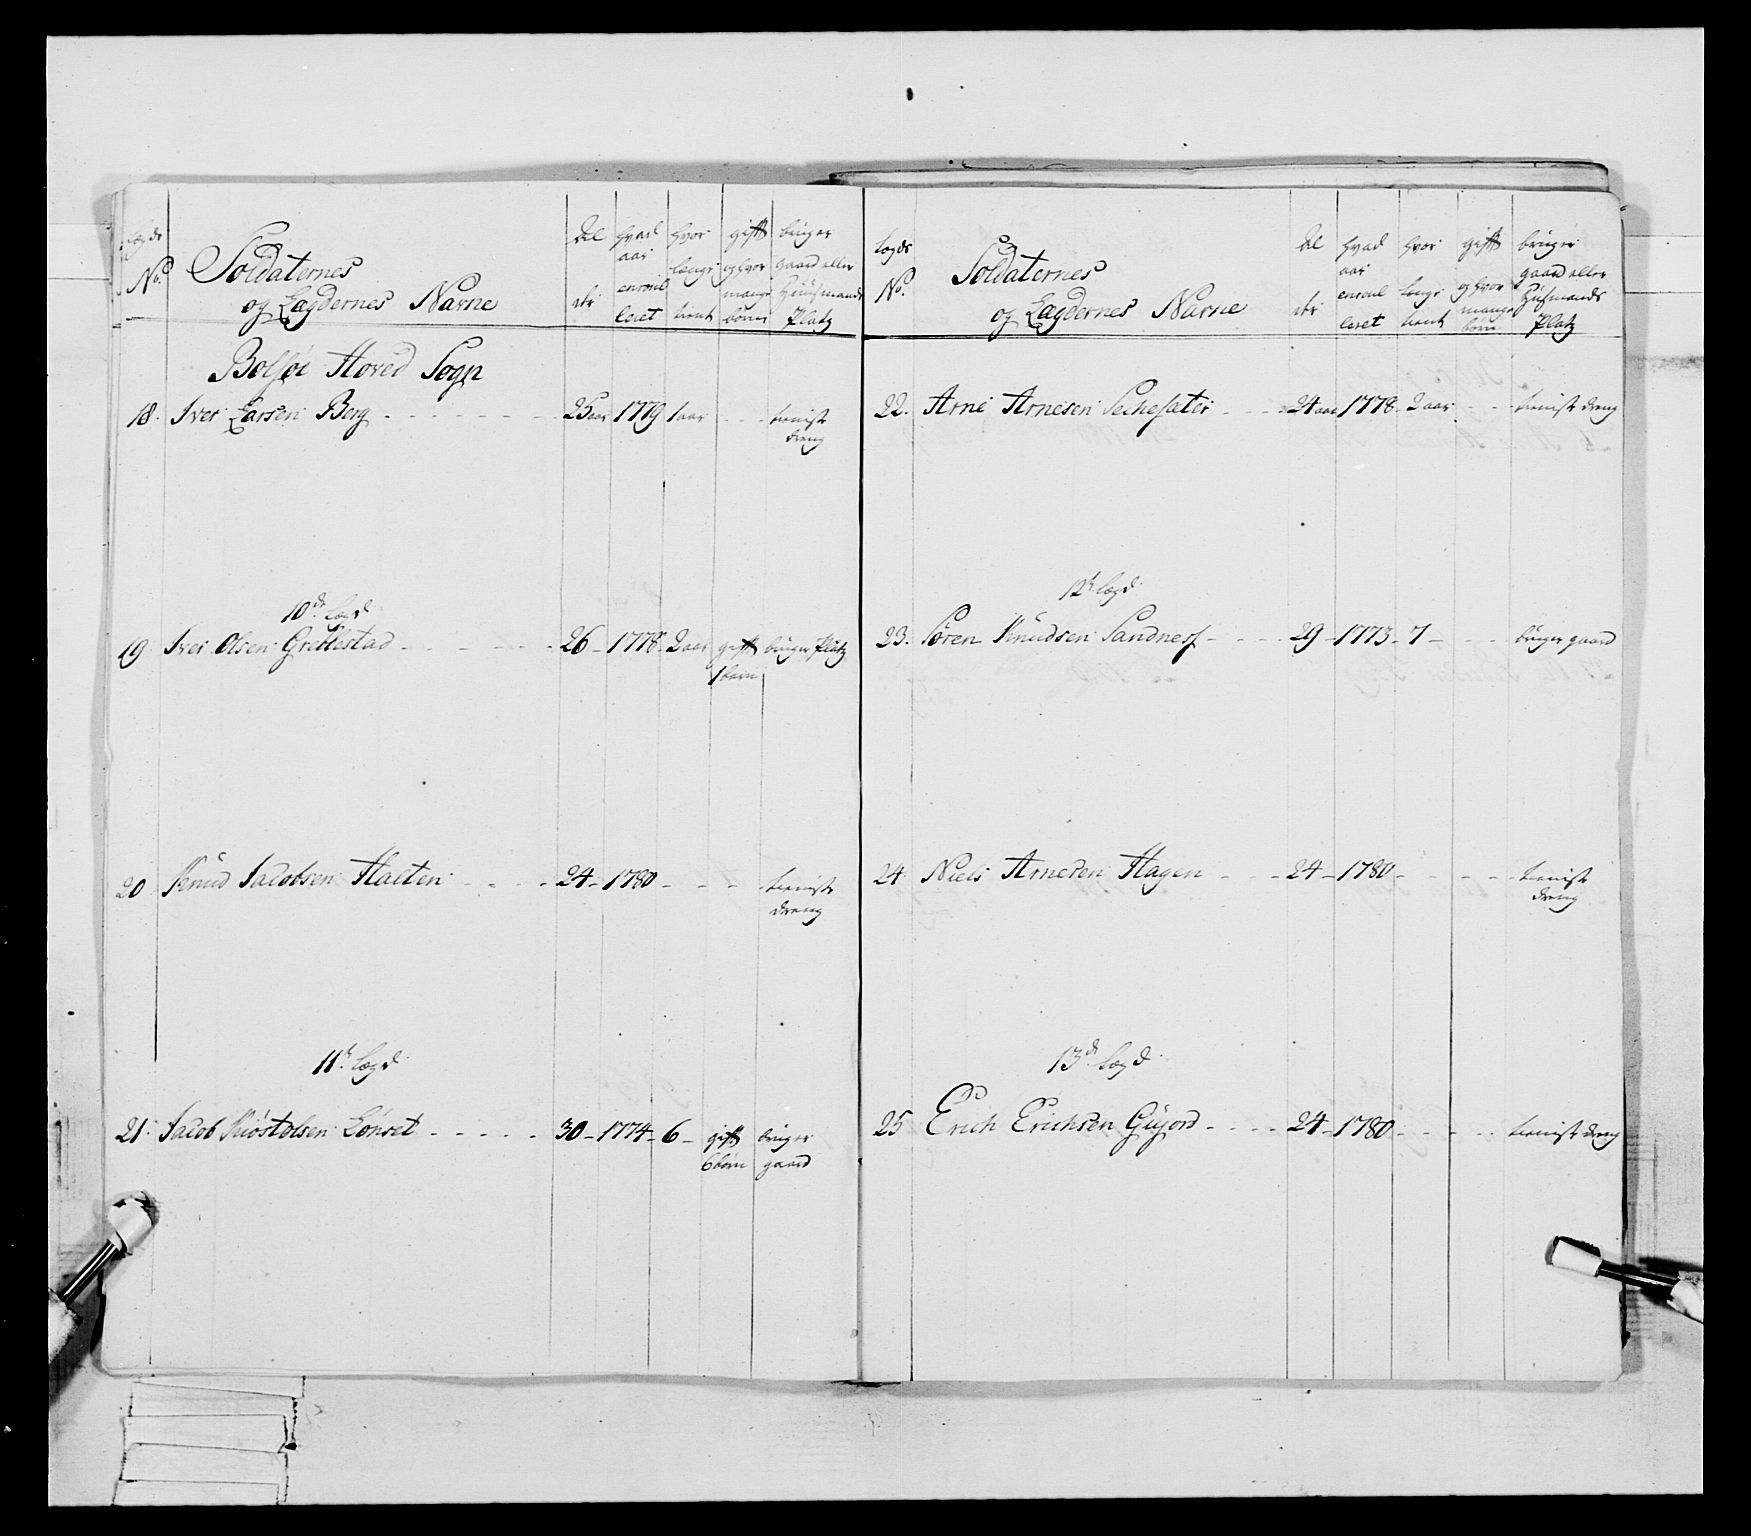 Lægds No.
Soldaternes
og Lægdernes Navne
Al der
hvad aar enroul leret
hvor længe tient
gift og hvor mange børn
bruger gaard eller Huusmands Platz
Bolsøe Hoved Sogn
18. Iver Larsen Berg 25 aar 1779 1 aar tieniste dreng
10de Lægd
19. Iver Olsen Grettestad 26 1778 2 aar gift 1 barn bruger Platz
20. Knud Jacobsen Haeten 24 1780 tieniste dreng
11te Lægd
21. Jacob Lönset 30 1774 6 gift 6 børn bruger gaard
Lægds No.
Soldaternes
og Lægdernes Navne
Al der
hvad aar enroul leret
hvor længe tient
gift og hvor mange børn
bruger gaard eller Huusmands Platz
22. Arne Arnesen 24 aar 1778 2 aar tieniste dreng
12te Lægd
23. Søren Knudsen Sandness 29 1773 7 bruger gaard
24 Niels Arnesen Hagen 24 1780 tieniste dreng
13de Lægd
25 Erich Erichsen Gujord 24 1780 tieniste dreng